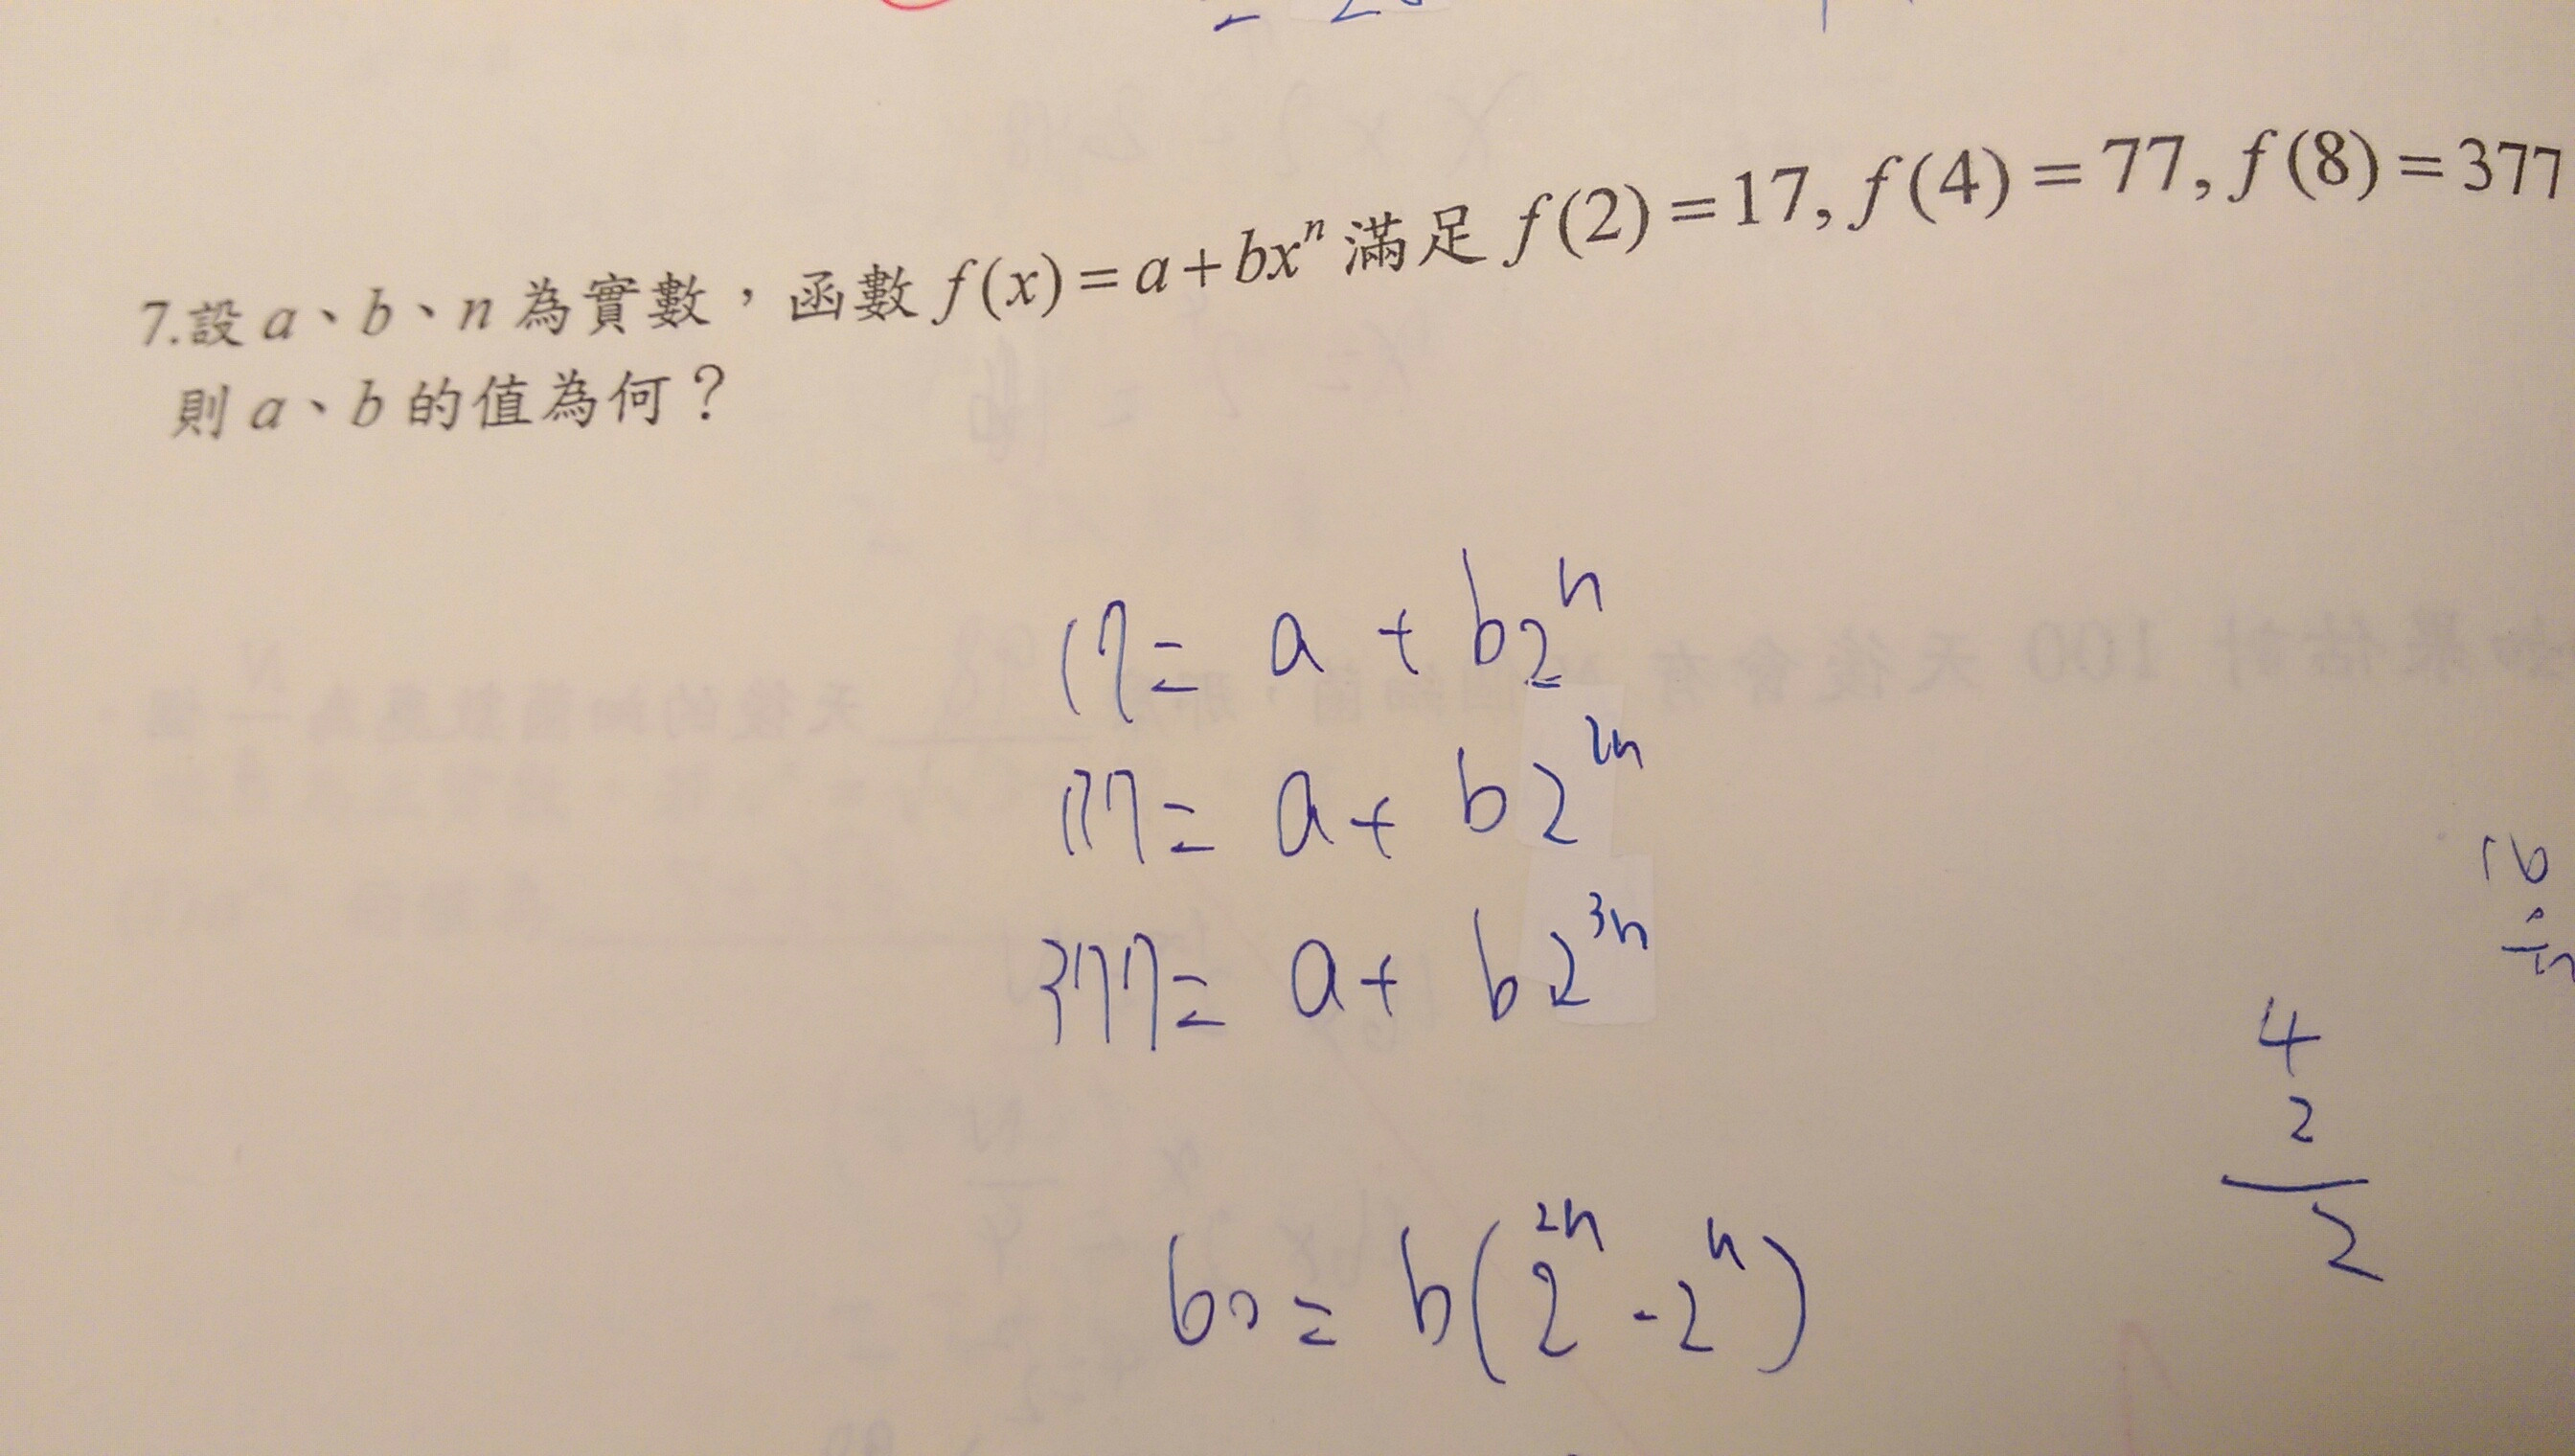 7.設 a、b、n 為實數，函數 f(x)=a+bxⁿ 滿足 f(2)=17, f(4)=77, f(8)=377
則 a、b 的值為何？
17= a + b2ⁿ
77= a + b2²ⁿ
377= a + b2³ⁿ
16
4
2
2
60 = b(2²ⁿ - 2ⁿ)